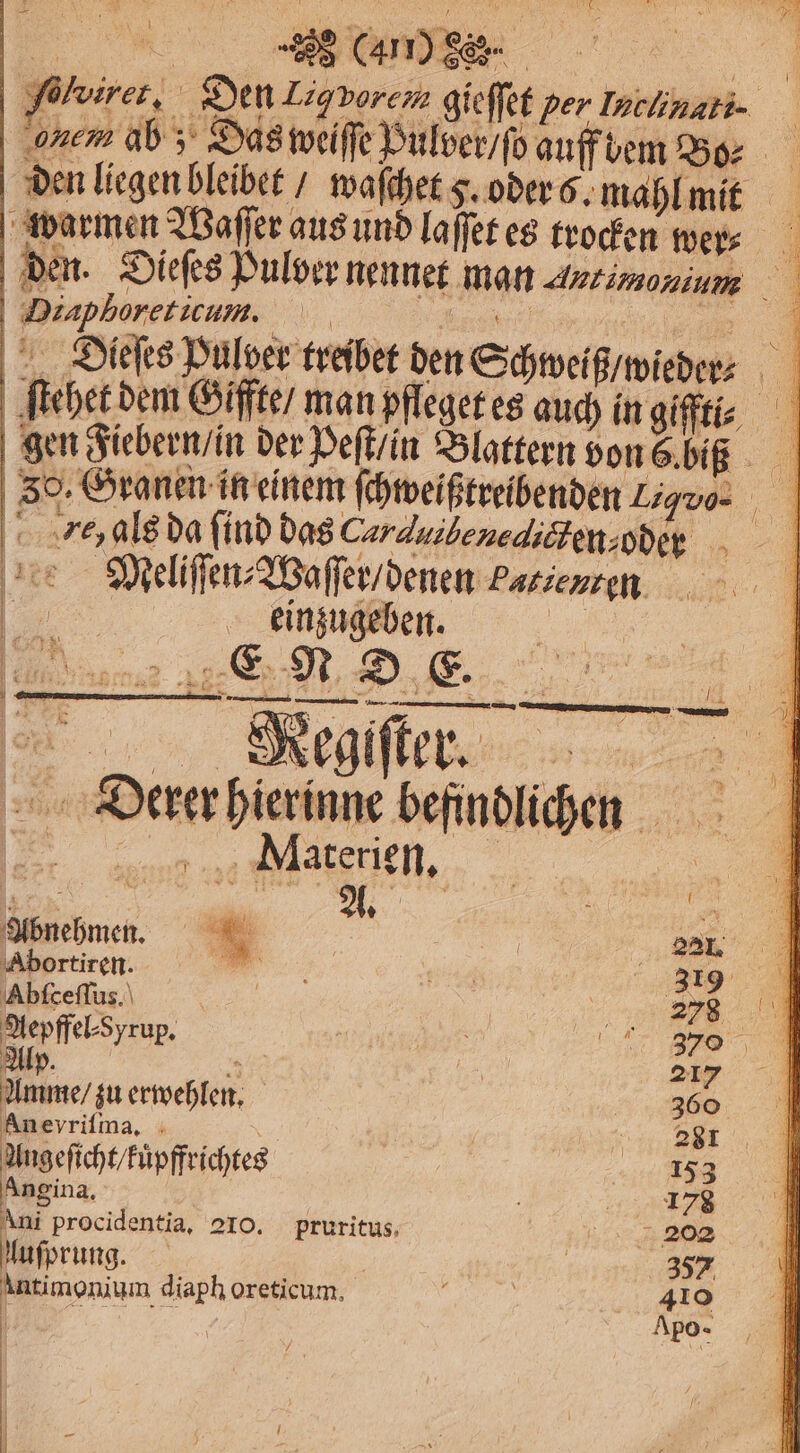 (411)
ſolviret. Den Liqvorem gieſſet per Inclinati-
onem ab ; Das weiſſe Pulver/ſo auff dem Bo-
den liegen bleibet / waſchet 5. oder 6. mahl mit
warmen Waſſer aus und laſſet es trocken wer-
den. Dieſes Pulver nennet man Antimonium
Diaphoreticum.
Dieſes Pulver treibet den Schweiß/wieder-
ſtehet dem Giffte/ man pfleget es auch in giffti-
gen Fiebern/in der Peſt/in Blattern von 6.biß
30. Granen in einem ſchweißtreibenden Liqvo-
re, als da ſind das Carduibenedicten-oder
Meliſſen-Waſſer/denen Patienten
einzugeben.
E N D E.
Regiſter.
Derer hierinne befindlichen
Materien.
A.
Abnehmen. 221.
Abortiren. 319
Abſceſſus. 278
Aepffel-Syrup. 370
Alp. 217
Amme/ zu erwehlen. 360
Anevriſma. 281
Angeſicht/küpffrichtes 153
Angina. 178
Ani procidentia. 210. pruritus. 202
Auſprung. 357
Antimonium diaphoreticum. 410
Apo-